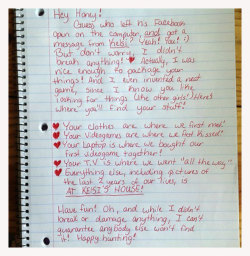 Hey Honey!
Guess who left his Facebook
open on the computer and got a
message from Keisi? Yeah! You! :)
But don't worry, I didn't
break anything! ♥ Actually, I was
nice enough to package your
things! And I even invented a neat
game, since I know you like
looking for things (like other girls). Here's
where you'll find your stuff!
♥ Your clothes are where we first met!
♥ Your Videogames are where we first kissed!
♥ Your Laptop is where we bought our
first videogame together!
♥ Your T.V. is where we went "all the way"
♥ Everything else, including pictures of
the last 2 years of our lives, is
AT KEISI'S HOUSE!
Have fun! Oh, and while I didn't
break or damage anything, I can't
guarantee anybody else won't find
it! Happy hunting!